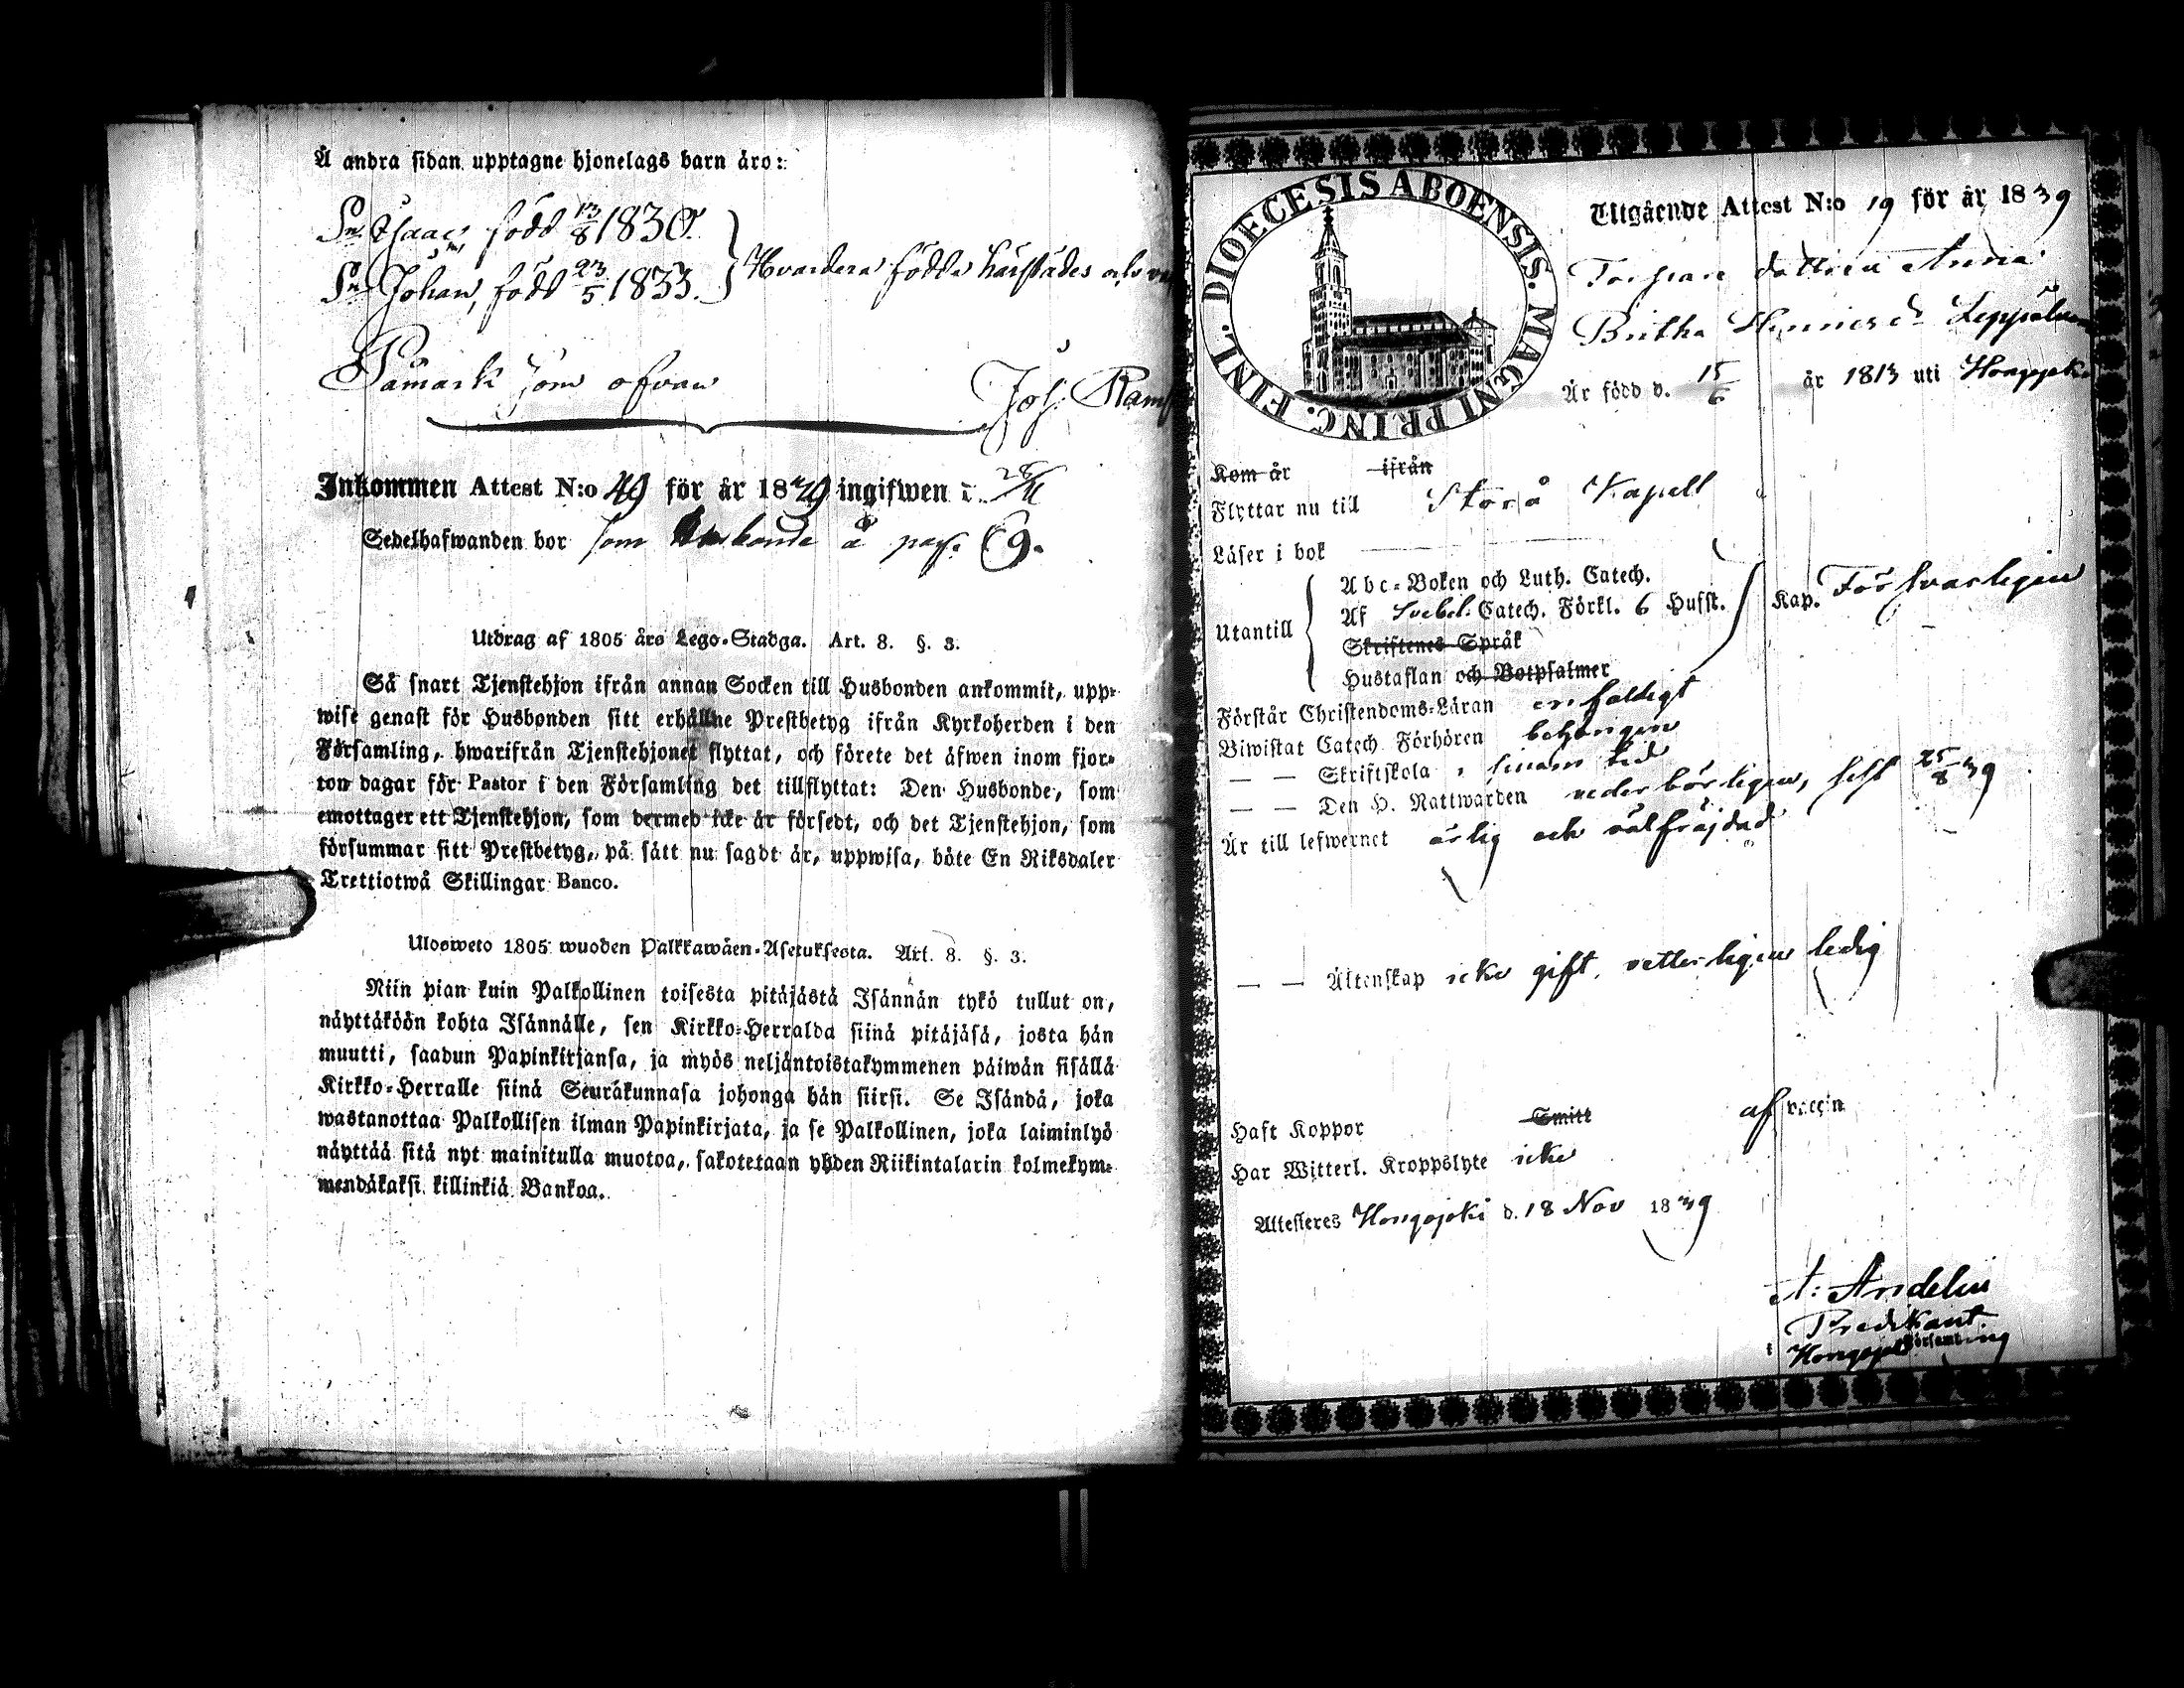 Å andra sidan upptagne hjonelags barn äro:
Sn. Isaac, född 13/8 1830.
Sn. Johan, född 23/5 1833. } Hvardera födde härstädes och
Påmark som ofvan
Joh. Ram
Inkommen Attest N:o 49 för år 1839 ingifwen d. 28/11
Sedelhafwanden bor som å pag. 69.
Utdrag af 1805 års Lego-Stadga. Art. 8. §. 3.
Så snart Tjenstehjon ifrån annan Socken till Husbonden ankommit, upp-
wise genast för Husbonden sitt erhållne Prestbetyg ifrån Kyrkoherden i den
Församling, hwarifrån Tjenstehjonet flyttat, och förete det äfwen inom fjor-
ton dagar för Pastor i den Församling det tillflyttat: Den Husbonde, som
emottager ett Tjenstehjon, som dermed icke är försedt, och det Tjenstehjon, som
försummar sitt Prestbetyg, på sätt nu sagdt är, uppwisa, böte En Riksdaler
Trettiotwå Skillingar Banco.
Ulosweto 1805 wuoden Palkkawäen-Asetuksesta. Art. 8. §. 3.
Niin pian kuin Palkollinen toisesta pitäjästä Isännän tykö tullut on,
näyttäköön kohta Isännälle, sen Kirkko-Herralda siinä pitäjäsä, josta hän
muutti, saadun Papinkirjansa, ja myös neljäntoistakymmenen päiwän sisällä
Kirkko-Herralle siinä Seurakunnasa johonga hän siirsi. Se Isändä, joka
wastanottaa Palkollisen ilman Papinkirjata, ja se Palkollinen, joka laiminlyö
näyttää sitä nyt mainitulla muotoa, sakotetaan yhden Riikintalarin kolmekym-
mendäkaksi killinkiä Bankoa.
DIOECESIS ABOENSIS. MAGNI PRINC. FINL.
Utgående Attest N:o 19 för år 1839
Torpare dottren Anna
Britha Henricsdr
Är född d. 15/6 år 1813 uti Hongojoki
Kom år ifrån
Flyttar nu till Storå Kapell
Läser i bok
Utantill { Abc-Boken och Luth. Catech.
Af Svebel. Catech. Förkl. 6 Hufst. } Kap. Försvarligen
Skriftenes Språk
Hustaflan och Botpsalmer
Förstår Christendoms-Läran enfaldigt
Biwistat Catech. Förhören behörigen
— — Skriftskola i sinom tid
— — Den H. Nattwarden vederbörligen, sist 25/8 39
Är till lefwernet ärlig och välfräjdad
— — Äktenskap icke gift, vetterligen ledig
Haft Koppor Smitt af vaccin
Har Witterl. Kroppslyte icke
Attesteres Hongojoki d. 18 Nov 1839
A: Andelin
Predikant
i Hongojoki Församling